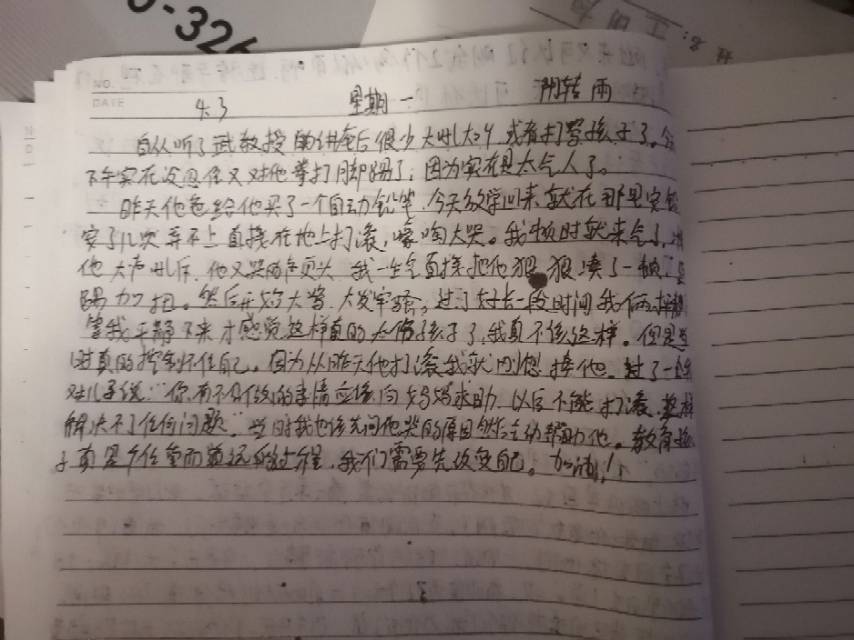 0-326
NO.
DATE
4.3 星期一 阴转雨
自从听了武教授的讲座后很少大吼大叫或者打骂孩子了。今
下午实在没忍住又对他拳打脚踢了，因为实在是太气人了。
昨天他爸给他买了一个自动铅笔，今天放学回来就在那里安铅
安了几次弄不上直接在地上打滚，嚎啕大哭。我顿时就来气了，
他大声吼后，他又哭 我一生气直接把他狠狠凑了一顿，
踢力扭。然后开始大骂，大发牢骚，过了好长一段时间我俩才
等我平静下来才感觉这样真的太伤孩子了，我真不该这样。但是当
时真的控制不住自己。因为从昨天他打滚我就 想揍他。过了一
对儿子说："你有不会做的事情应该向妈妈求助，以后不能打滚，这样
解决不了任何问题"。当时我也该先问他哭的原因然后主动帮助他。教育孩
子真是个任重而道远的过程，我们需要先改变自己。加油！